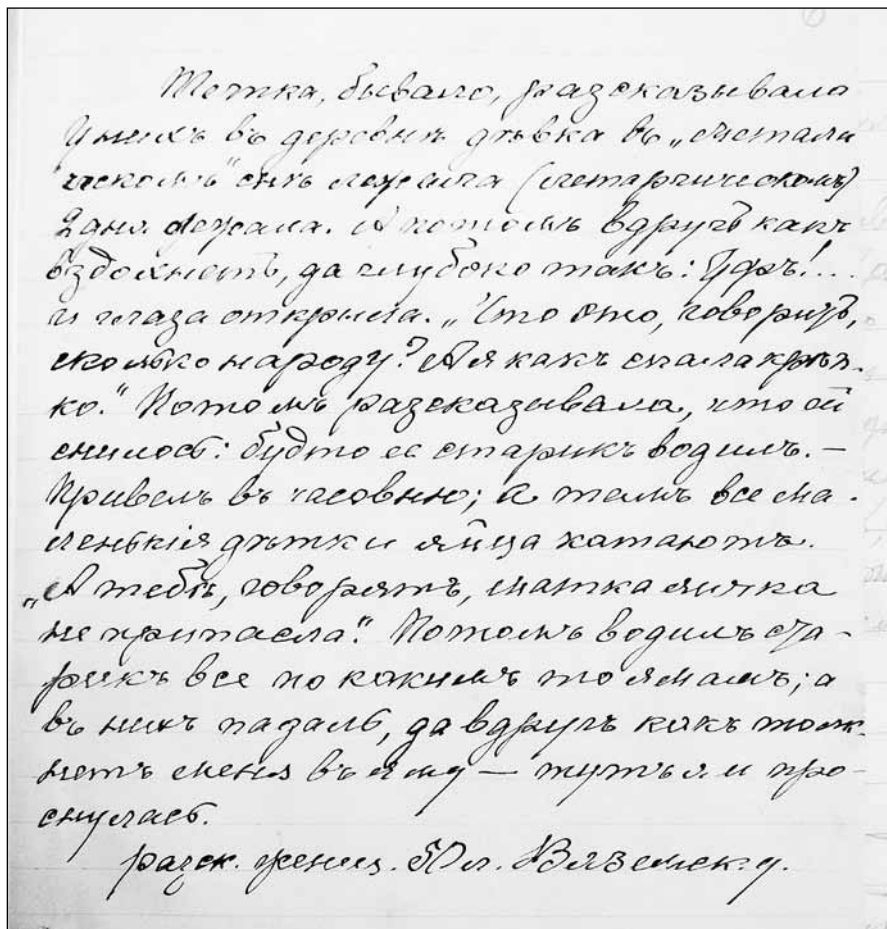 Тетка, бывало, разсказывала
У нихъ въ деревнѣ дѣвка въ „метали
ческомъ“ снѣ лежала (летаргическомъ)
2 дня лежала. А потомъ вдругъ какъ
вздохнетъ, да глубоко такъ: Ухъ!...
и глаза открыла. „Что это, говоритъ,
сколько народу? А я какъ спала крѣп-
ко.“ Потомъ разсказывала, что ей
снилось: будто ее старикъ водилъ. —
Привелъ въ часовню; а тамъ все ма-
ленькія дѣтки яйца катаютъ.
„А тебѣ, говорятъ, матка яичка
не припасла“. Потомъ водилъ ста-
рикъ все по какимъ то ямамъ; а
въ нихъ, да вдругъ какъ толк-
нетъ меня въ яму — тутъ я и про-
снулась.
разск. Вяземск. у.